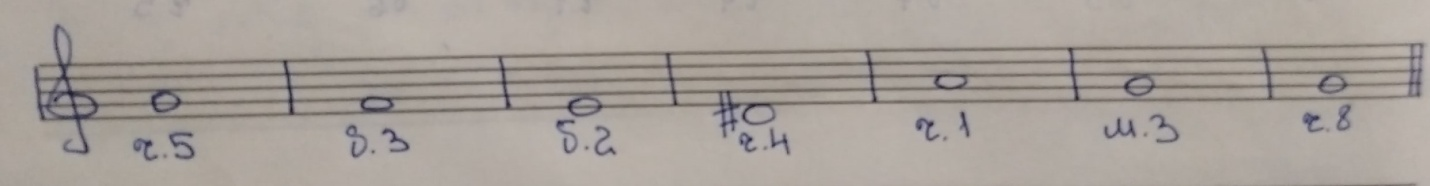 ч.5 б.3 б.2 ч.4 ч.1 м.3 ч.8